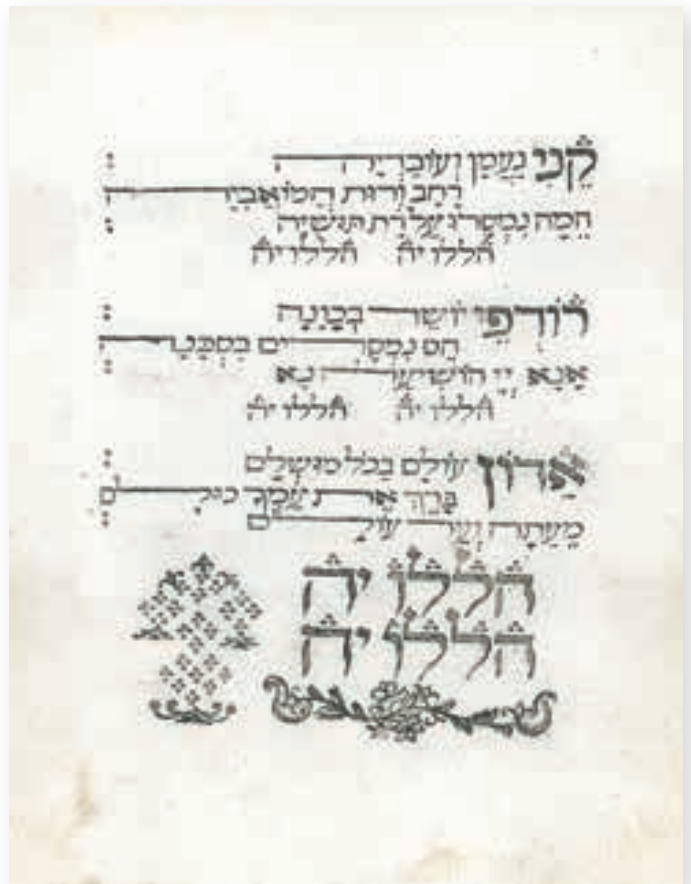 קֵנִי נַעֲמָן וְעוֹבַדְיָה :
רָחָב וְרוּת הַמּוֹאֲבִיָּ
הֵמָּה נִמְסְרוּ עַל דָּת תּוּשִׁיָּה :
הללו יה הללו יה
רוֹדְפֵי יוֹשֶׁר בְּכַוָּנָה :
אָנָא יְיָ הוֹשִׁיעָה נָא
הללו יה הללו יה
אֲדוֹן עוֹלָם בַּכֹּל מוֹשְׁלָם :
בָּרֵךְ אֶת עַמְּךָ כּוּלָּם
מֵעַתָּה וְעַד עוֹלָם :
הללו יה
הללו יה